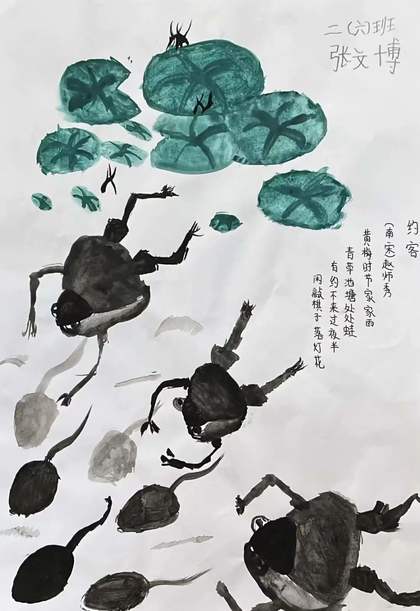 二(六)班
张文博
约客
(南宋)赵师秀
黄梅时节家家雨
青草池塘处处蛙
有约不来过夜半
闲敲棋子落灯花